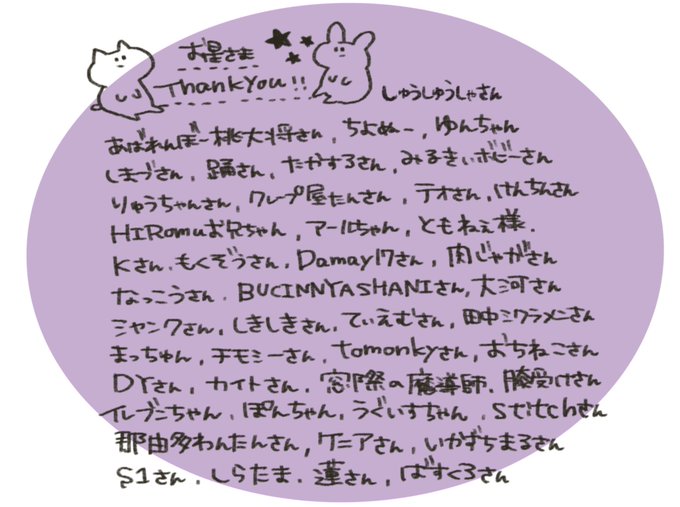 お星さま
Thank You!!
しゅうしゅうしゃさん
あばれんぼー桃大将さん, ちよぬー, ゆんちゃん
しまづさん, 踊さん, たかするさん, みるきぃボビーさん
りゅうちゃんさん, クレープ屋たんさん, テオさん, けんちんさん
HIRomuお兄ちゃん, アールちゃん, ともねぇ様.
Kさん, もくぞうさん, Damay17さん, 肉じゃがさん
なっこうさん, BUCINNYASHANIさん, 大河さん
ミヤンクさん, しきしきさん, てぃえむさん, 田中シクラメンさん
まっちゅん, チモシーさん, tomonkyさん, おちねこさん
DYさん, カイトさん, 窓際の魔導師, 腕受けさん
イレブンちゃん, ぽんちゃん, うぐいすちゃん, stitchさん
那由多わんたんさん, ケニアさん, いかずちまるさん
S1さん, しらたま, 蓮さん, ばすくろさん